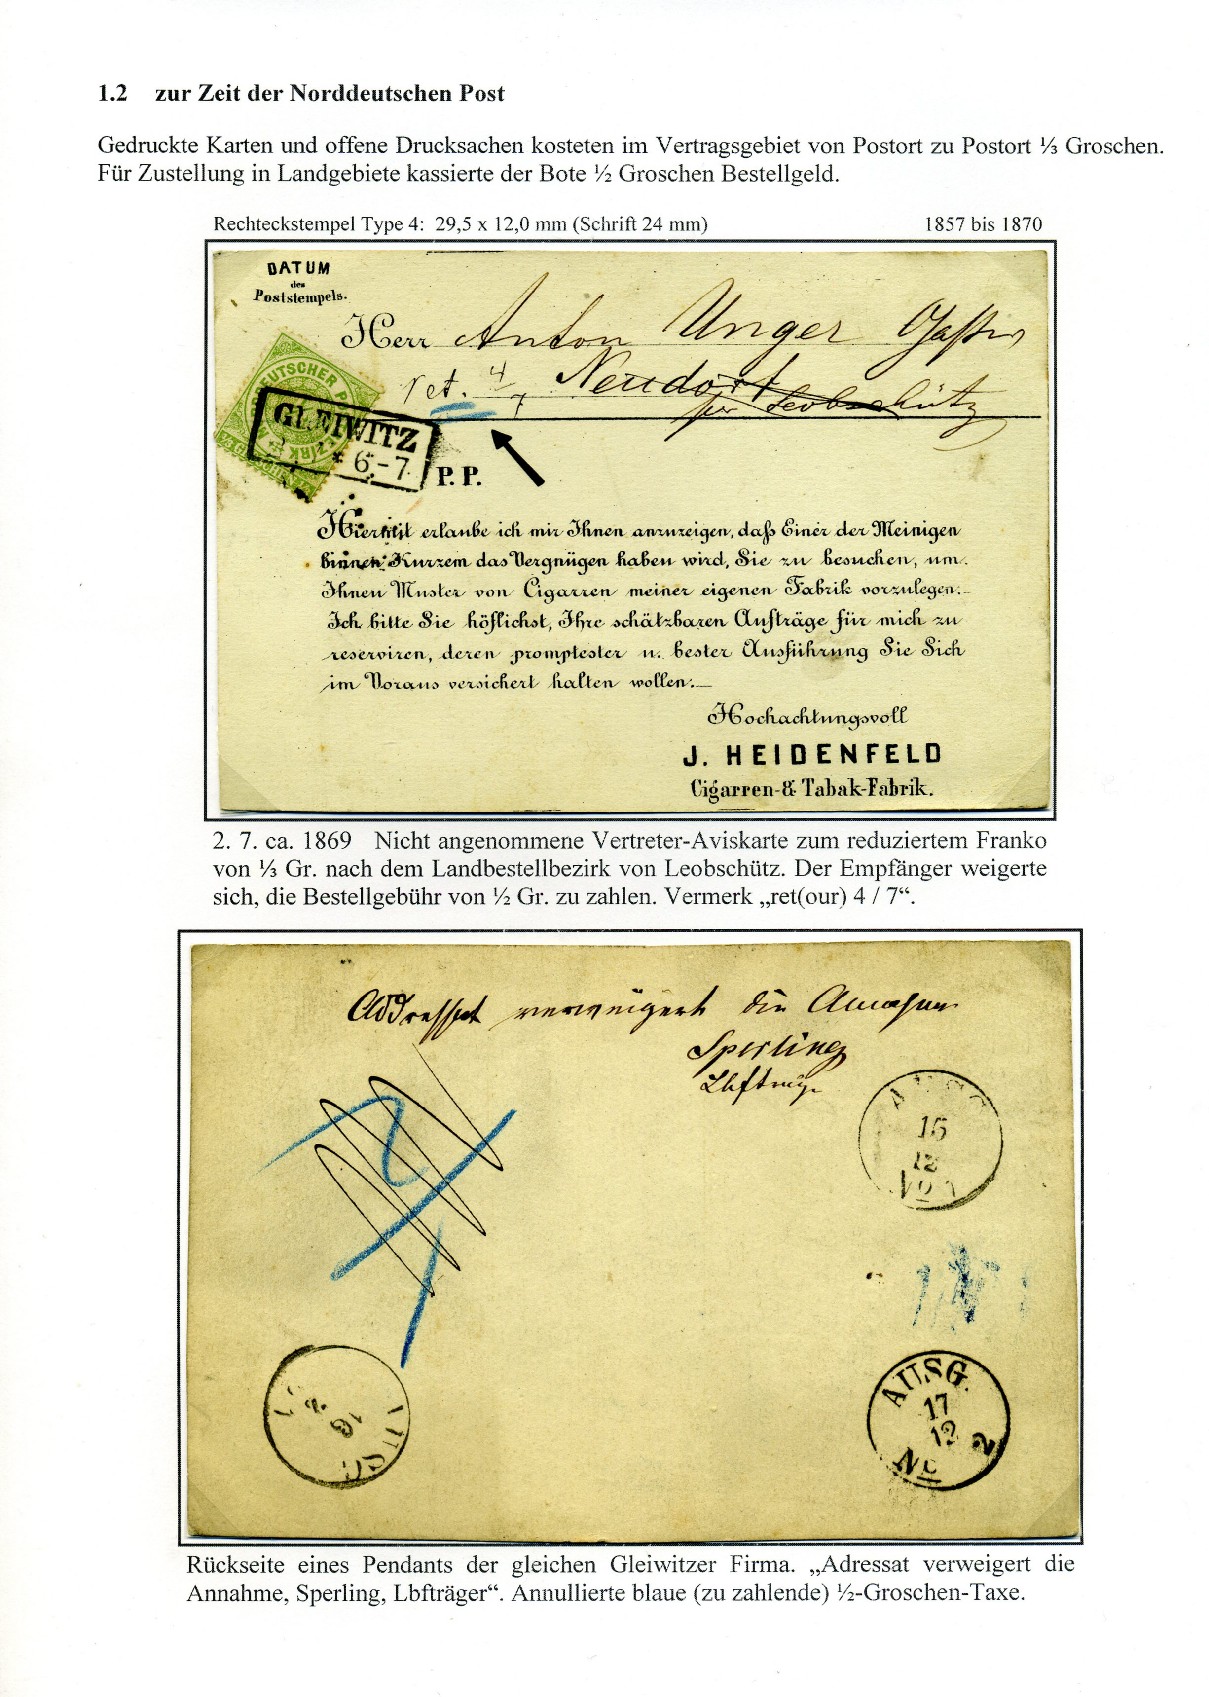 1.2 zur Zeit der Norddeutschen Post
Gedruckte Karten und offene Drucksachen kosteten im Vertragsgebiet von Postort zu Postort ⅓ Groschen.
Für Zustellung in Landgebiete kassierte der Bote ½ Groschen Bestellgeld.
Rechteckstempel Type 4: 29,5 x 12,0 mm (Schrift 24 mm) 1857 bis 1870
DATUM
des
Poststempels.
Herr Anton Unger
ret. 4/7 Neudorf
per Leobschütz
GLEIWITZ
6-7
P. P.
Hiermit erlaube ich mir Ihnen anzuzeigen, daß Einer der Meinigen
binnen Kurzem das Vergnügen haben wird, Sie zu besuchen, um
Ihnen Muster von Cigarren meiner eigenen Fabrik vorzulegen.
Ich bitte Sie höflichst, Ihre schätzbaren Aufträge für mich zu
reserviren, deren promptester u. bester Ausführung Sie Sich
im Voraus versichert halten wollen.
Hochachtungsvoll
J. HEIDENFELD
Cigarren-& Tabak-Fabrik.
2. 7. ca. 1869 Nicht angenommene Vertreter-Aviskarte zum reduziertem Franko
von ⅓ Gr. nach dem Landbestellbezirk von Leobschütz. Der Empfänger weigerte
sich, die Bestellgebühr von ½ Gr. zu zahlen. Vermerk „ret(our) 4 / 7“.
Addressat verweigert die Annahme
Sperling
Lbfträger
AUSG
15
12
No 1
AUSG.
17
12
No 2
Rückseite eines Pendants der gleichen Gleiwitzer Firma. „Adressat verweigert die
Annahme, Sperling, Lbfträger“. Annullierte blaue (zu zahlende) ½-Groschen-Taxe.